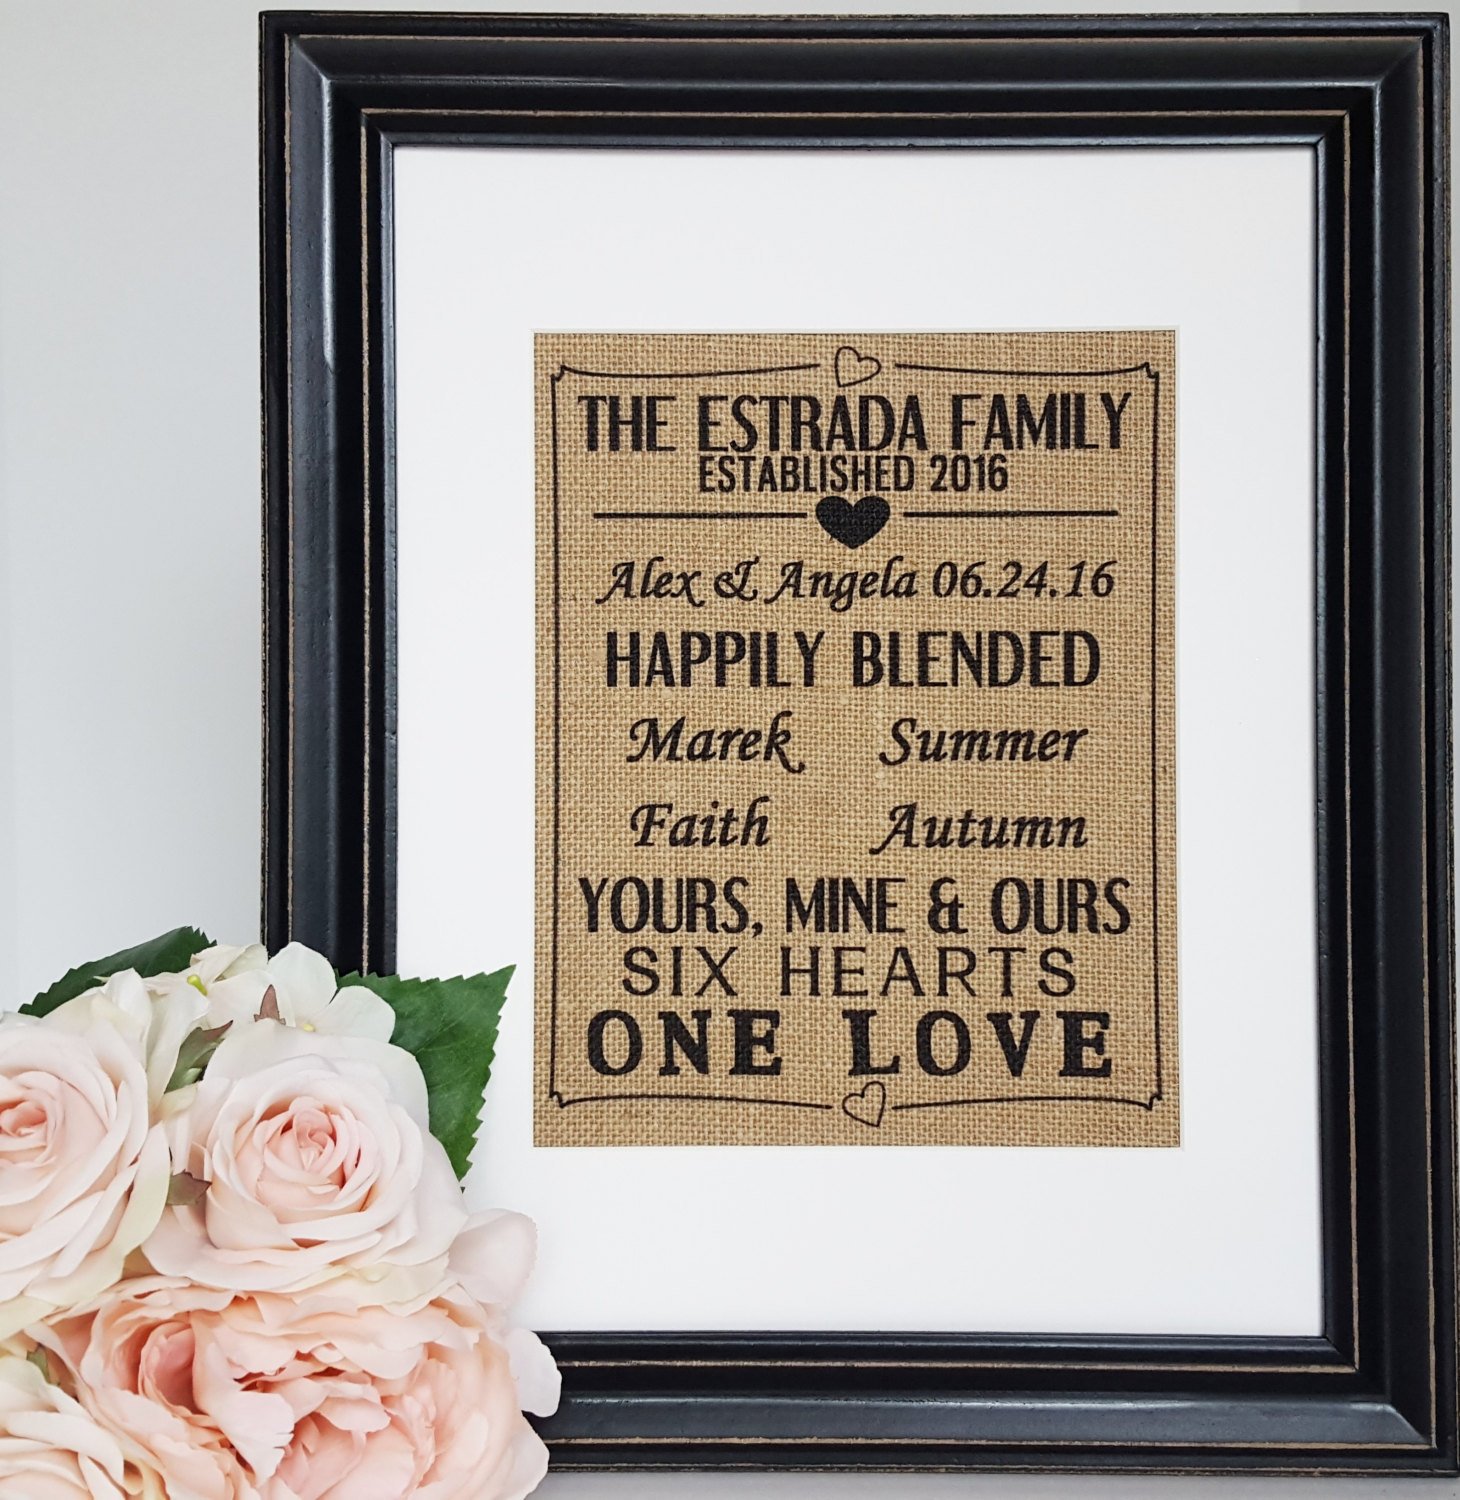 THE ESTRADA FAMILY
ESTABLISHED 2016
Alex & Angela 06.24.16
HAPPILY BLENDED
Marek Summer
Faith Autumn
YOURS, MINE & OURS
SIX HEARTS
ONE LOVE